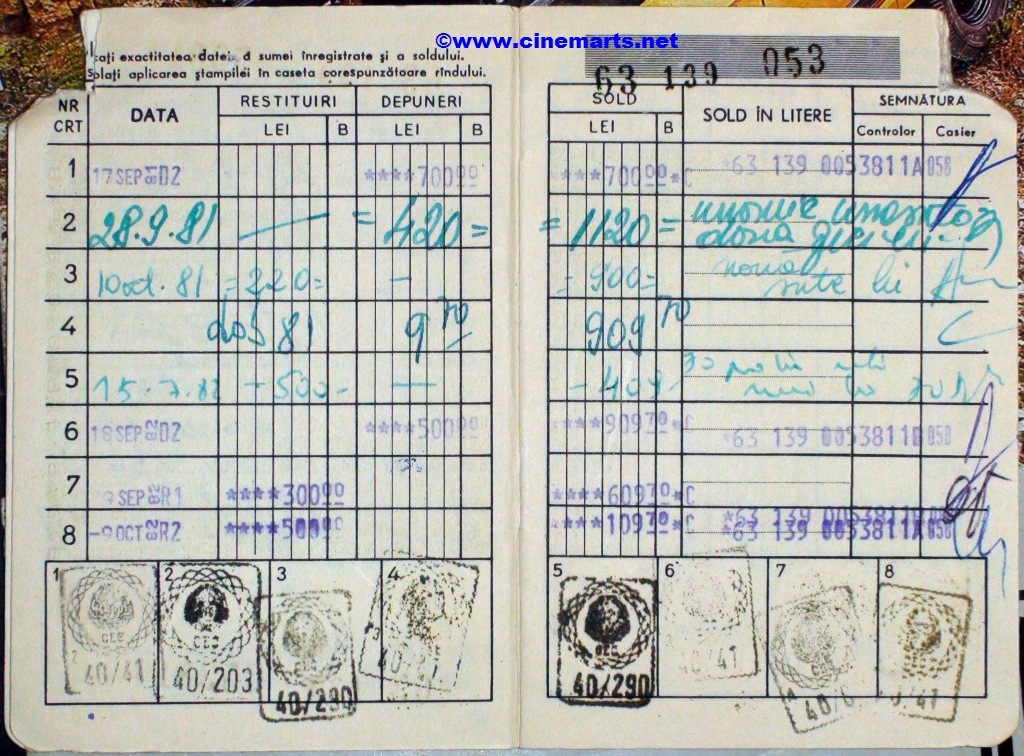 ©www.cinemarts.net
cați exactitatea datei, a sumei înregistrate și a soldului.
olați aplicarea ștampilei în caseta corespunzătoare rîndului.
63 139 053
NR CRT DATA RESTITUIRI DEPUNERI SOLD SOLD ÎN LITERE SEMNĂTURA
LEI B LEI B LEI B Controlor Casier
1 17 SEP 81 D2 ****700 00 ****700 00 *C *63 139 0053811A 058
2 28.9.81 — = 420 = = 1120 =
3 10 oct. 81 = 220 = — = 900 = nouă sute lei
4 dob 81 9 70 909 70
5 15.7.82 - 500 - — - 409 -
6 SEP 82 D2 ****500 00 ****909 70 *C *63 139 0053811 058
7 SEP 82 R1 ****300 00 ****609 70 *C *63 139
8 -9 OCT 82 R2 ****500 00 ****109 70 *C *63 139 0053811A 058
1 2 3 4 5 6 7 8
CEC CEC CEC CEC
40/41 40/203 40/290 40/290 40/41